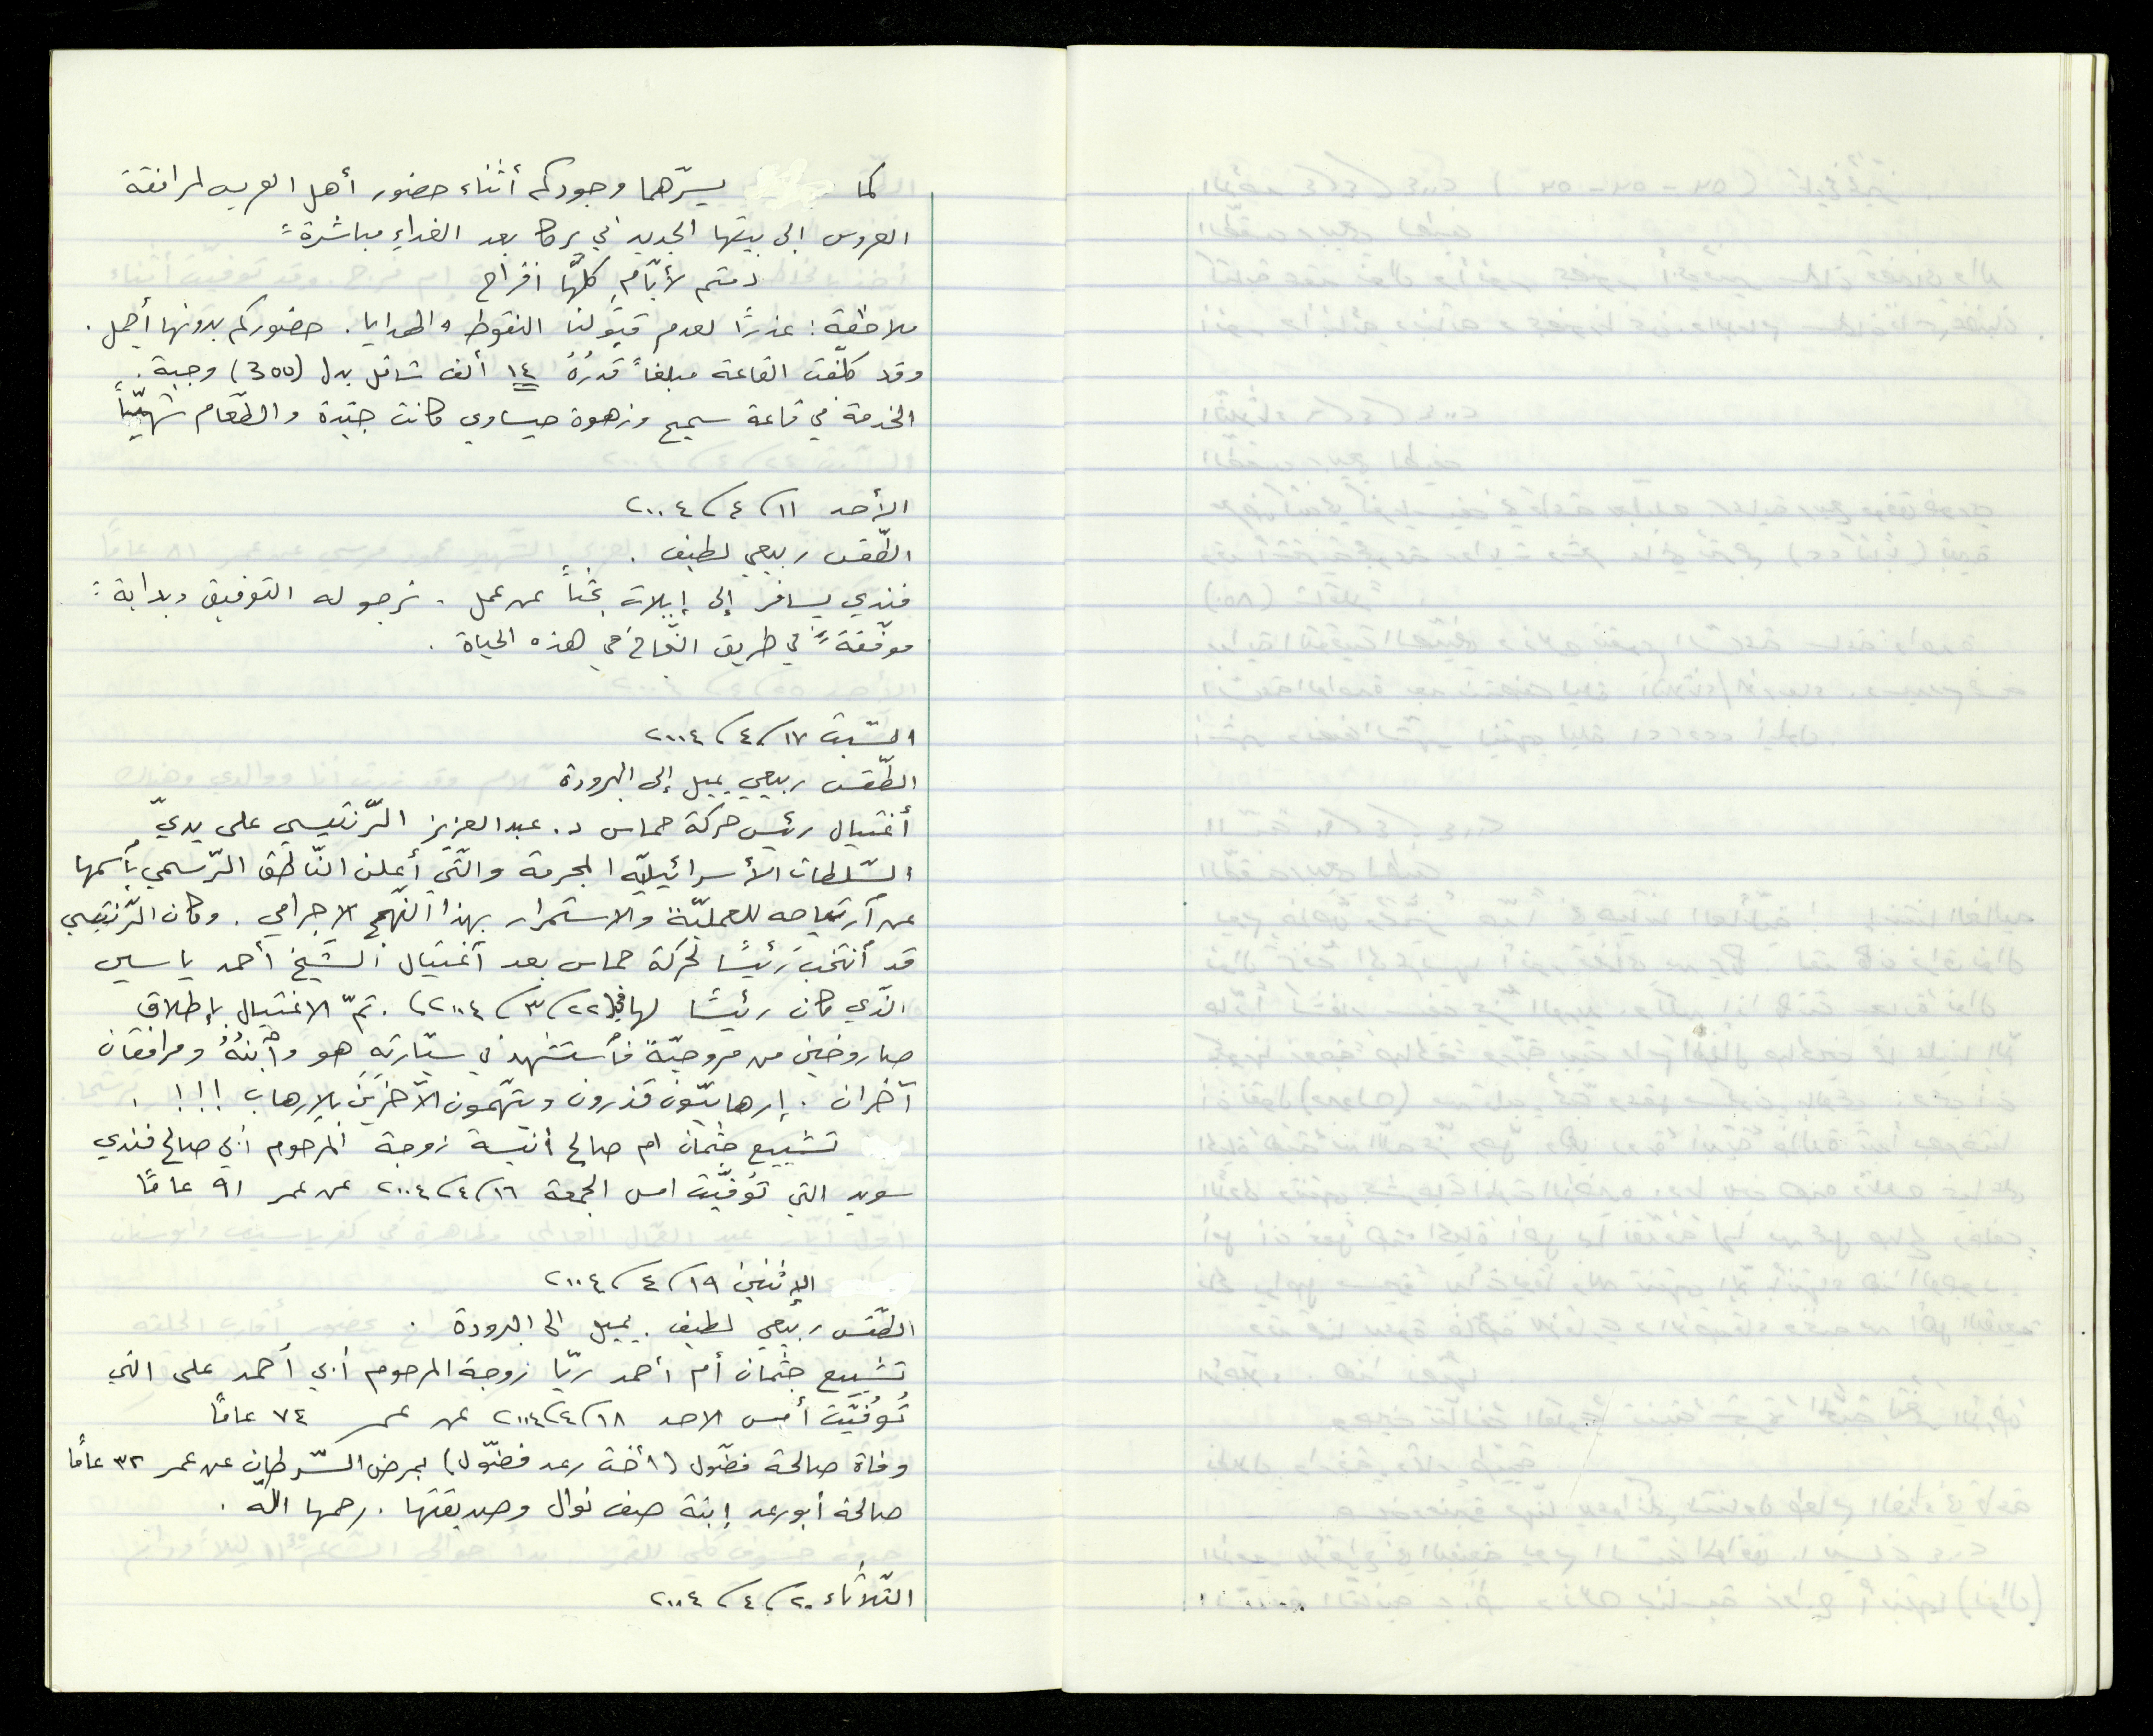 كما يسرّهما وجودكم أثناء حضور أهل العريس لمرافقة
العروس إلى بيتها الجديد في يركا بعد الغداءِ مباشرة:
دمتم لأيّامٍ كلهّا افراح
ملاحظة: عذرًا لعدم قبَولنا النقوط والهدايا. حضوركم بدونها أجمل.
وقد كلّفت القاعة مبلغاً قدرُهُ ١٤ ألف شاقل بدل (300) وجبة.
الخدمة في قاعة سميح وزهوة حيساوي كانت جيّدة والطّعام شهيّاً
الأحد ١١/ ٤/ ٢٠٠٤
الطّقس ربيعي لطيف.
فندي يسافر إلى إيلات بحثاً عن عمل. نرجو له التوفيق وبداية:
موفّقة في طريق النّجاح في هذه الحياة.
السّبت ١٧/ ٤/ ٢٠٠٤
الطّقس ربيعي يميل إلى البرودة
أغتيال رئيس حركة حماس د. عبد العزيز الرّنتيسي على يديّ
السّلطات الأسرائيليّة المجرمة والتّي أعلن النّاطق الرّسمي بأسمها
عن آرتياحه للعمليّة والاستمرار بهذا النّهج الاجرامي. وكان الرّنتيسي
قد أنتخبَ رئيسًا لحركة حماس بعد آغتيال الشّيخ أحمد ياسين
الذّي كان رئيسًا لها في (٢٢/ ٣/ ٢٠٠٤). تمّ الاغتيال بإطلاق
صاروخين من مروحيّة فأستشهد في سيّارته هو وآبنهُ ومرافقان
آخران. إرهابيّون قذرون ويتهّمون الآخرَينَ بالإرهاب !!!.
تشييع جثمان ام صالح أنيسة زوجة المرحوم ابي صالح فندي
سويد التي توُفيّت امس الجمعة ١٦/ ٤/ ٢٠٠٤ عن عمر ٩١ عامًا
الإثنين ١٩/ ٤/ ٢٠٠٤
الطّقس ربيعي لطيف. يميل الى البرودة.
تشييع جثمان أم أحمد ريّا زوجة المرحوم أبي أحمد علي التي
تُوُفيّت أمس الاحد ١٨/ ٤/ ٢٠٠٤ عن عمر ٧٤ عامًا
وفاة صالحة فضّول (أخت رعد فضّول) بمرض السّرطان عن عمر ٣٢ عامًا
صالحة أبو رعد إبنة صف نوال وصديقتها. رحمها اللّه.
الثّلاثاء ٢٠/ ٤/ ٢٠٠٤